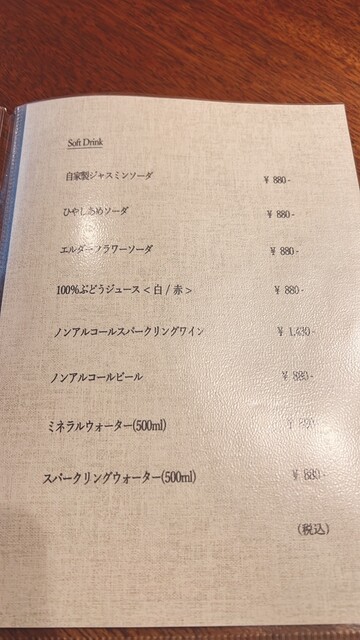 Soft Drink
自家製ジャスミンソーダ ¥ 880-
ひやしあめソーダ ¥ 880-
エルダーフラワーソーダ ¥ 880-
100%ぶどうジュース < 白 / 赤 > ¥ 880-
ノンアルコールスパークリングワイン ¥ 1,430-
ノンアルコールビール ¥ 880-
ミネラルウォーター(500ml) ¥
スパークリングウォーター(500ml) ¥ 880-
(税込)